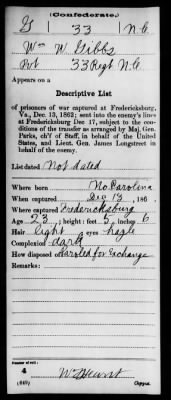 (Confederate.)
G 33 N.C.
Wm W. Gibbs
Pvt 33 Regt N.C.
Appears on a
Descriptive List
of prisoners of war captured at Fredericksburg,
Va., Dec. 13, 1862; sent into the enemy's lines
at Fredericksburg Dec 17, subject to the condi-
tions of the transfer as arranged by Maj. Gen.
Parks, ch'f of Staff, in behalf of the United
States, and Lieut. Gen. James Longstreet in
behalf of the enemy.
List dated Not dated
Where born No. Carolina
When captured Dec 13, 186 .
Where captured Fredericksburg
Age 23 ; height: feet 5, inches 6
Hair light eyes hazle
Complexion dark
How disposed of Paroled for Exchange
Remarks:
Number of roll:
4
(649) Copyist.